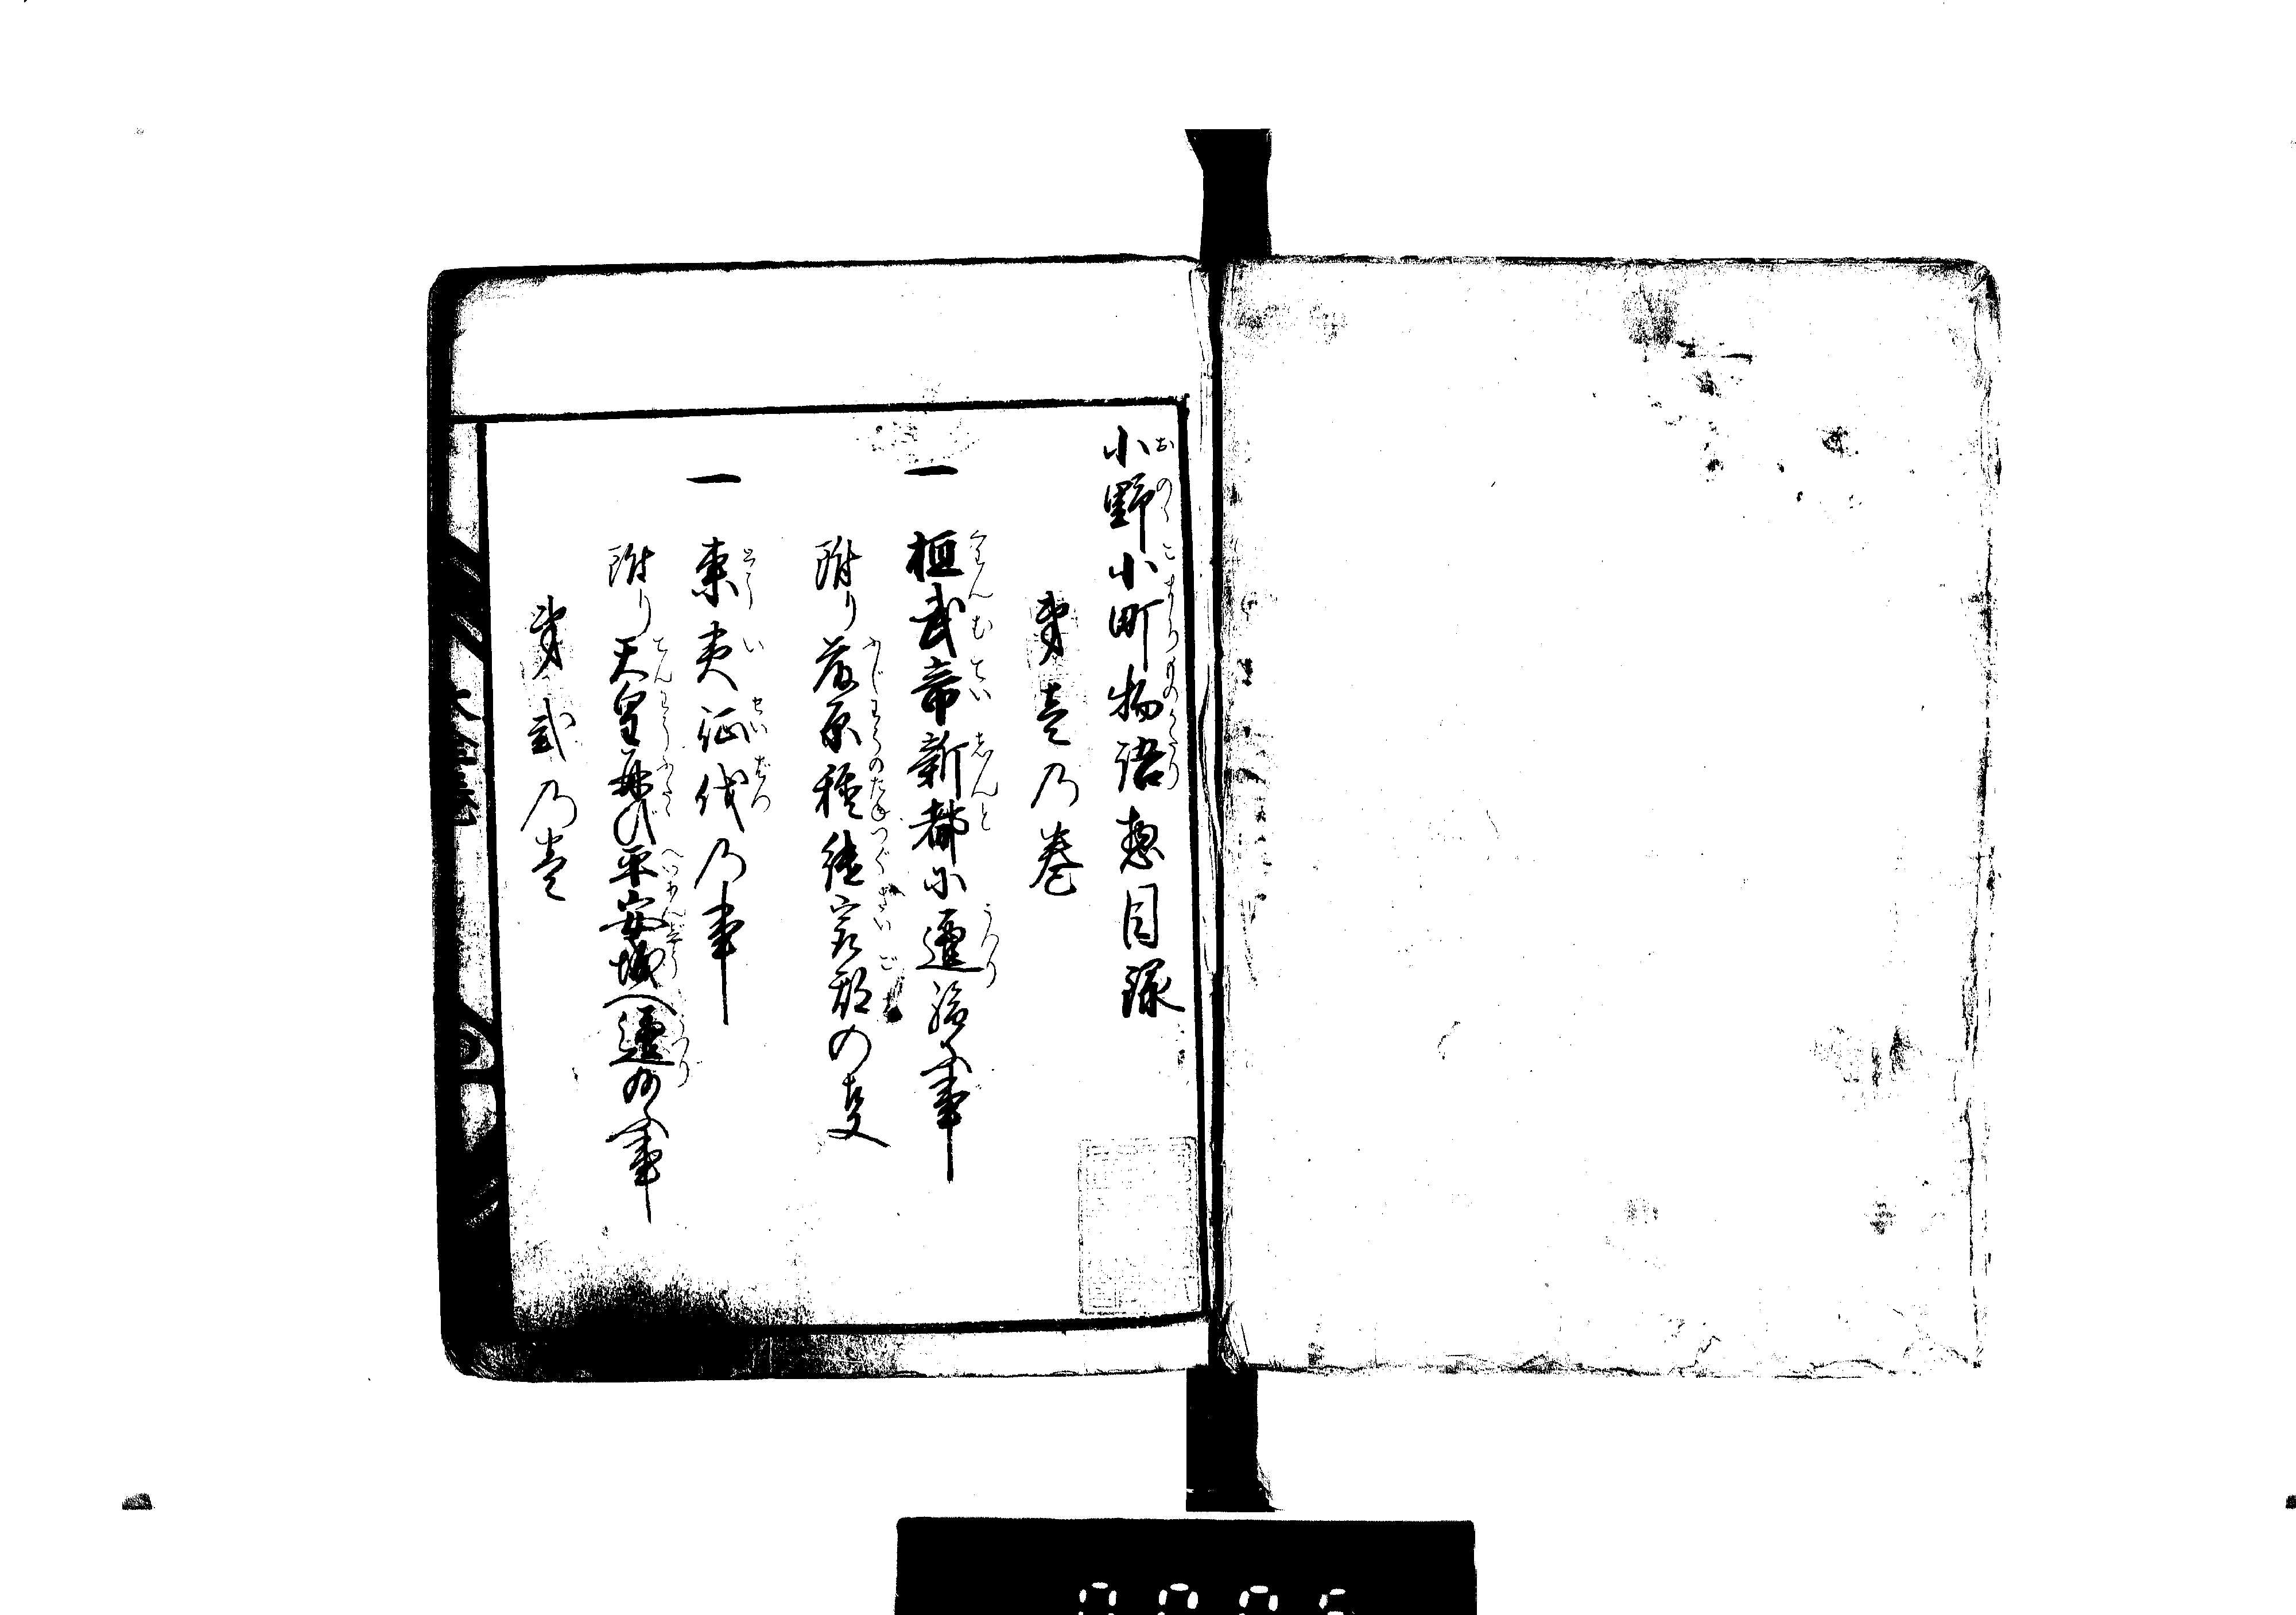 小野小町物語惣目録
第壱乃巻
一 桓武帝新都に遷給ふ事
附り藤原種継最期の支
一 東夷征伐乃事
附り天皇再び平安城へ遷り給ふ事
第弐乃巻